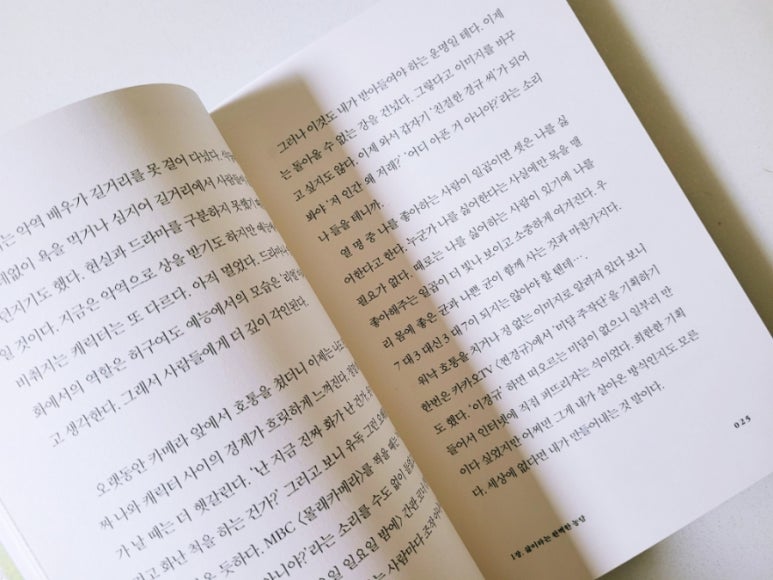 는 악역 배우가 길거리를 못 걸어 다녔다.
욕을 먹거나 심지어 길거리에서
던지기도 했다. 현실과 드라마를 구분하지 못했기
일 것이다. 지금은 악역으로 상을 받기도 하지만
비춰지는 캐릭터는 또 다르다. 아직 멀었다. 드라마
화에서의 역할은 허구여도 예능에서의 모습은
고 생각한다. 그래서 사람들에게 더 깊이 각인된다.
오랫동안 카메라 앞에서 호통을 쳤더니 이제는
짜 나와 캐릭터 사이의 경계가 흐릿하게 느껴진다.
가 날 때는 더 헷갈린다. '난 지금 진짜 화가 난 건가,
화난 척을 하는 건가?' 그러고 보니 유독 그런
은 듯하다. MBC 〈몰래카메라〉를 찍을 때는
아니야?'라는 소리를 수도 없이
일요일 밤에〉 간판
사람마다
그러나 이것도 내가 받아들여야 하는 운명일 테다. 이제
는 돌아올 수 없는 강을 건넜다. 그렇다고 이미지를 바꾸
고 싶지도 않다. 이제 와서 갑자기 '친절한 경규 씨'가 되어
봐야 '저 인간 왜 저래?' '어디 아픈 거 아니야?'라는 소리
나 들을 테니까.
열 명 중 나를 좋아하는 사람이 일곱이면 셋은 나를 싫
어한다고 한다. 누군가 나를 싫어한다는 사실에만 목을 맬
필요가 없다. 때로는 나를 싫어하는 사람이 있기에 나를
좋아해주는 일곱이 더 빛나 보이고 소중하게 여겨진다. 우
리 몸에 좋은 균과 나쁜 균이 함께 사는 것과 마찬가지다.
7 대 3 대신 3 대 7이 되지는 않아야 할 텐데…
워낙 호통을 치거나 정 없는 이미지로 알려져 있다 보니
한번은 카카오TV 〈찐경규〉에서 '미담 주작단'을 기획하기
도 했다. '이경규' 하면 떠오르는 미담이 없으니 일부러 만
들어서 인터넷에 직접 퍼뜨리자는 식이었다. 희한한 기획
이다 싶었지만 어쩌면 그게 내가 살아온 방식인지도 모른
다. 세상에 없다면 내가 만들어내는 것 말이다.
1장. 삶이라는 완벽한 농담
025